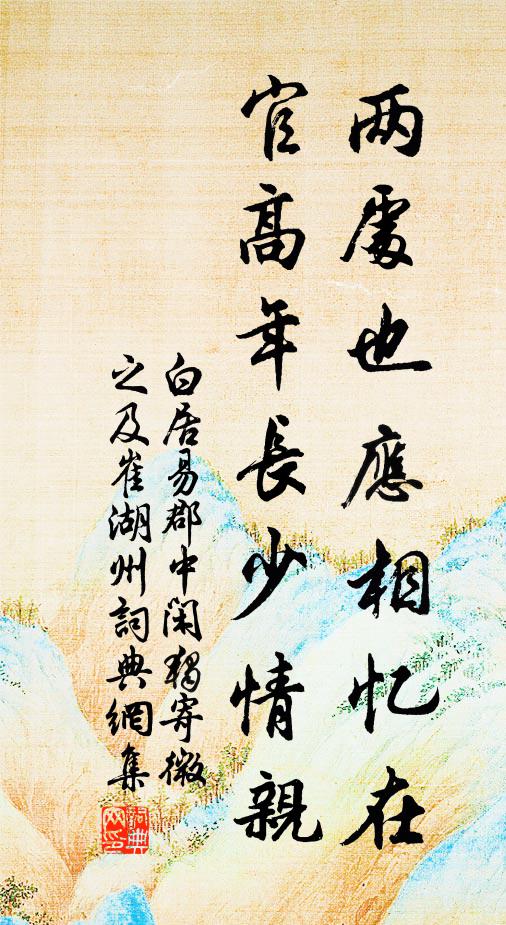 两處也應相忆在
官高年長少情親
白居易郡中閑獨寄微
之及崔湖州詞典網集